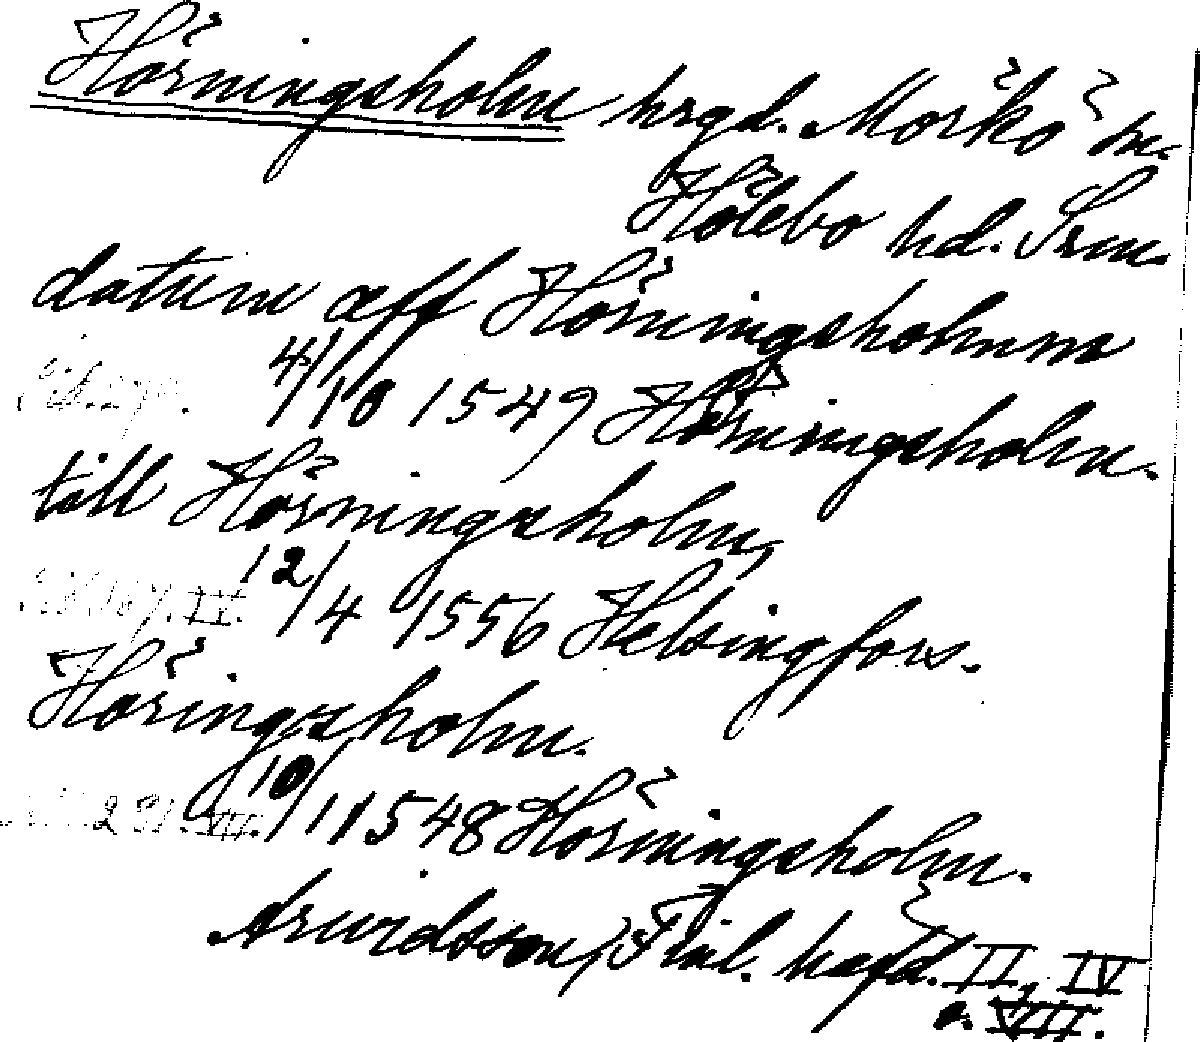 Hörningsholm hrgd. Mörkö sn.
Hölebo hd. Srm.
datum aff Hörningsholmm
4/10 1549 Hörningsholm.
till Hörningsholm,
IV. 12/4 1556 Helsingfors.
Höringsholm.
10/1 1548 Hörningsholm.
Arwidsson, Finl. häfd. II, IV
o. VII.